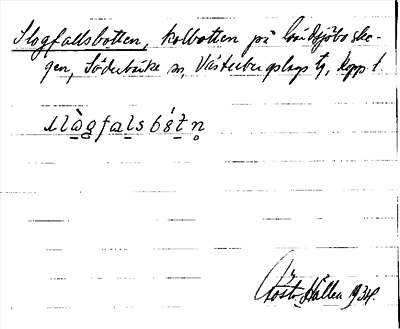 Slogfallsbotten, kolbotten på Bredsjöbosko-
gen, Söderbärke sn, Västerbergslags tg, Kopp. l.
Gösta Hallén 1934.